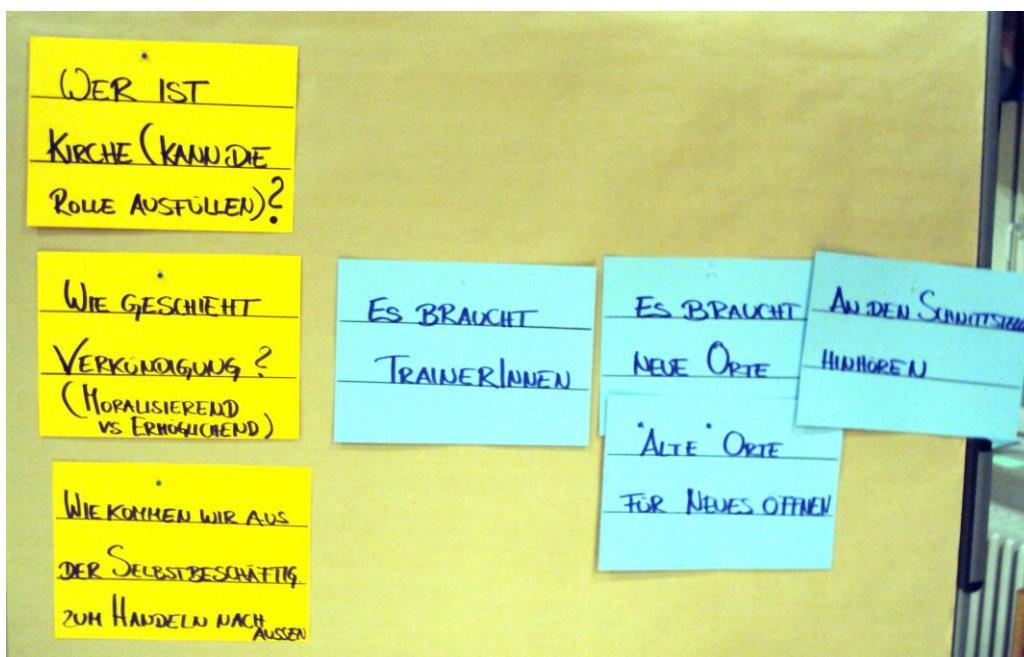 WER IST
KIRCHE (KANN DIE
ROLLE AUSFÜLLEN)?
WIE GESCHIEHT
VERKÜNDIGUNG?
(MORALISIEREND
VS ERMÖGLICHEND)
WIE KOMMEN WIR AUS
DER SELBSTBESCHÄFTIG
ZUM HANDELN NACH
AUSSEN
ES BRAUCHT
TRAINERINNEN
ES BRAUCHT
NEUE ORTE
"ALTE" ORTE
FÜR NEUES ÖFFNEN
AN DEN
HINHÖREN